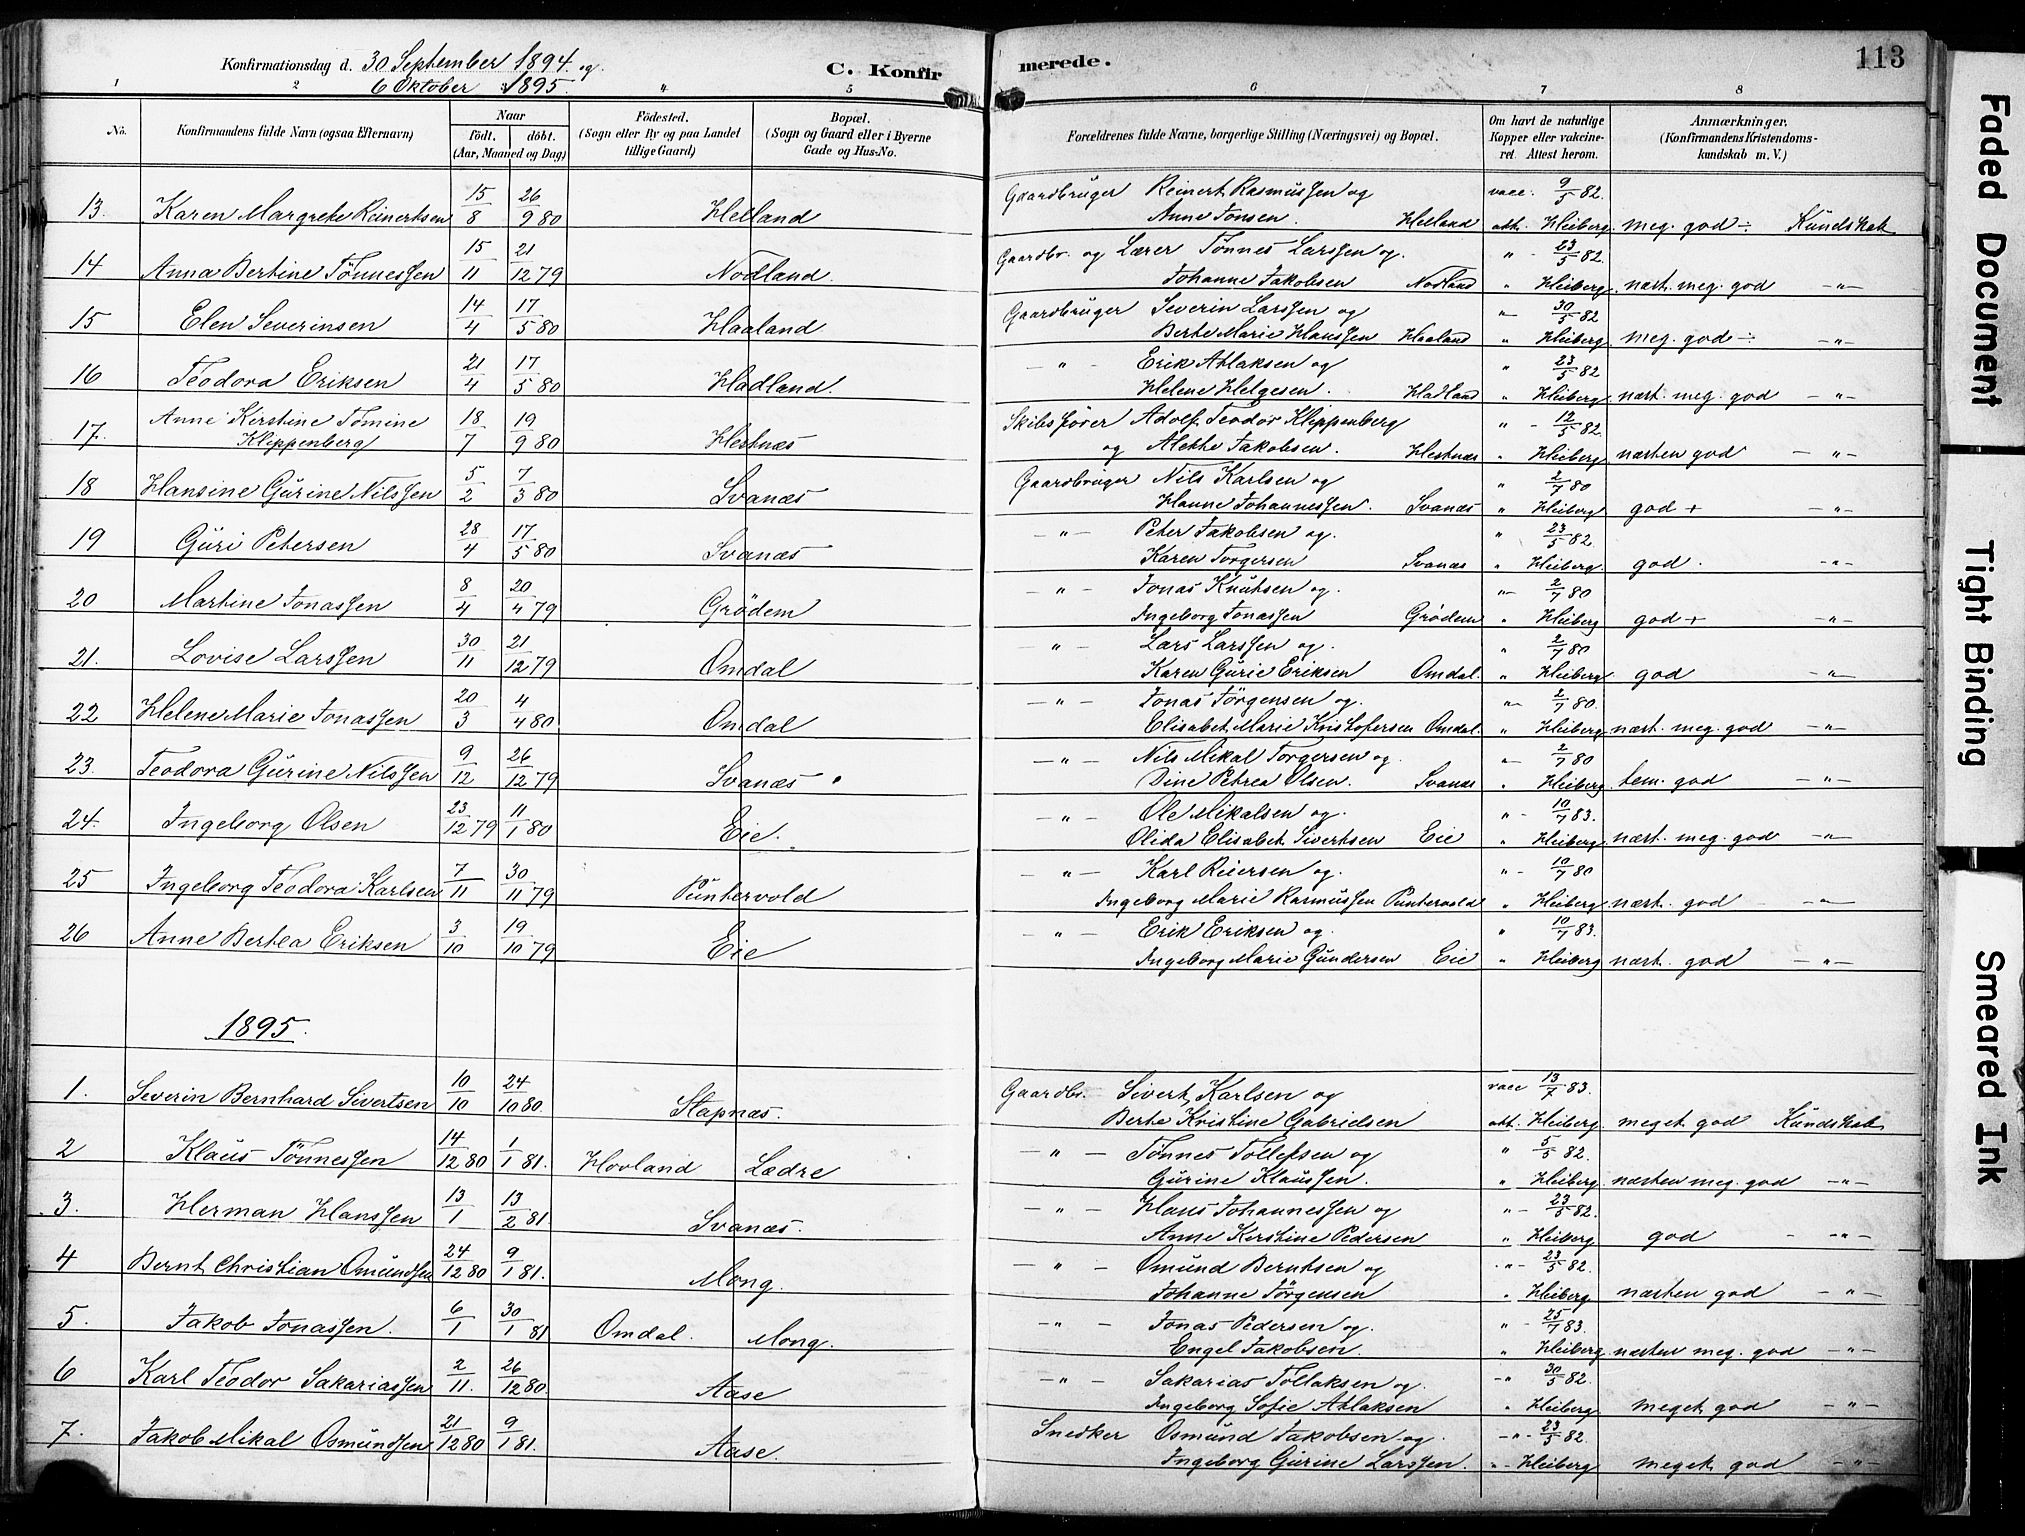 Konfirmationsdag d. 30 September 1894 og
6 Oktober 1895.
C. Konfirmerede.
113
1 2 4 5 6 7 8
No. Konfirmandens fulde Navn (ogsaa Efternavn) Naar født. døbt. (Aar, Maaned og Dag) Fødested. (Sogn eller By og paa Landet tillige Gaard) Bopæl. (Sogn og Gaard eller i Byerne Gade og Hus-No. Forældrenes fulde Navne, borgerlige Stilling (Næringsvei) og Bopæl. Om havt de naturlige Kopper eller vakcineret. Attest herom. Anmærkninger. (Konfirmandens Kristendomskundskab m. V.)
13. Karen Margrete Reinertsen 15/8 26/9 80 Helland Gaardbruger Reinert Rasmussen og vacc. 9/5 82.
Anne Jonsen. Helland att. Heiberg meg. god ÷ Kundskab
14 Anna Bertine Tönnessen 15/11 21/12 79 Nodland. Gaardbr. og Lærer Tönnes Larssen og " - 23/5 82.
Johanne Jakobsen Nodland " Heiberg næst. meg. god -"-
15 Elen Severinsen 14/4 17/5 80 Haaland Gaardbruger Severin Larssen og "- 30/5 82
Berte Marie Hanssen Haaland " Heiberg meg. god ÷ -"-
16 Teodora Eriksen 21/4 17/5 80 Hadland. - " - Erik Atlaksen og " 23/5 82
Helene Helgesen. Hadland " Heiberg næst. meg. god -"-
17. Anne Kirstine Tomine Klippenberg 18/7 19/9 80 Hestnæs Skibsfører Adolf Teodor Klippenberg " - 12/5 82.
og Alette Jakobsen. Hestnæs " Heiberg næsten god -"-
18 Hansine Gurine Nilssen 5/2 7/3 80 Svanæs Gaardbruger Nils Karlsen og " 2/7 80
Hanne Johannessen. Svanæs " Heiberg god + -"-
19 Guri Petersen 28/4 17/5 80 Svanæs -"- Peter Jakobsen og. " 23/5 82.
Karen Torgersen Svanæs " Heiberg. god. -"-
20 Martine Jonassen 8/4 20/4 79 Grödem - " - Jonas Knutsen og. "- 2/7 80
Ingeborg Jonassen Grödem " Heiberg god + -"-
21. Lovise Larssen 30/11 21/12 79 Omdal - " - Lars Larssen og. " 2/7 80
Karen Gurie Eriksen Omdal. " Heiberg god -"-
22 Helene Marie Jonassen 20/3 4/4 80 Omdal - " - Jonas Jörgensen og. "- 2/7 80.
Elisabet Marie Kristofersen Omdal. " Heiberg næst. meg. god -"-
23. Teodora Gurine Nilssen 9/12 26/12 79 Svanæs -"- Nils Mikal Torgersen og. "- 2/7 80
Dine Petrea Olsen. Svanæs " Heiberg tem. god -"-
24. Ingeborg Olsen 23/12 79 11/1 80 Eie. - " - Ole Mikalsen og. " - 10/7 83.
Olida Elisabet Sivertsen Eie " Heiberg næst. meg. god -"-
25 Ingeborg Teodora Karlsen 7/11 30/11 79 Puntervold - " - Karl Reiersen og. " - 10/7 80
Ingeborg Marie Rasmussen Puntervold " Heiberg næst. god -"-
26 Anne Bertea Eriksen 3/10 19/10 79 Eie - " - Erik Eriksen og. " 10/7 83.
Ingeborg Marie Gundersen Eie " Heiberg næst. god -"-
1895.
1. Severin Bernhard Sivertsen 10/10 24/10 80. Stapnæs. Gaardbr. Sivert Karlsen og vacc 13/7 83.
Berte Kristine Gabrielsen att. Heiberg. meget god Kundskab
2 Klaus Tönnessen 14/12 80 1/1 81. Hovland Lædre -"- Tönnes Tollefsen og " 5/5 82.
Gurine Klaussen. " Heiberg. næsten meg. god -"-
3. Herman Hanssen 13/1 13/2 81. Svanæs. - " - Hans Johannessen og "- 23/5 82.
Anne Kirstine Pedersen " Heiberg god - -"-
4 Bernt Christian Omundsen 24/12 80 9/1 81. Mong. - " - Omund Berntsen og "- 23/5 82.
Johanne Jörgensen " Heiberg næsten god -"-
5. Jakob Jonassen. 6/1 30/1 81 Omdal. Mong. -"- Jonas Pedersen og. " - 25/7 83.
Engel Jakobsen. " Heiberg. næsten meg. god -"-
6 Karl Teodor Sakariassen 2/11. 26/12 80. Aase -"- Sakarias Tollaksen og. -" 30/5 82.
Ingeborg Sofie Atlaksen " Heiberg meget god -"-
7. Jakob Mikal Osmundsen 21/12 80 9/1 81. Aase. Snedker Osmund Jakobsen og. -"- 23/5 82.
Ingeborg Gurine Larssen. "- Heiberg meget god -"-
Faded Document
Tight Binding
Smeared Ink